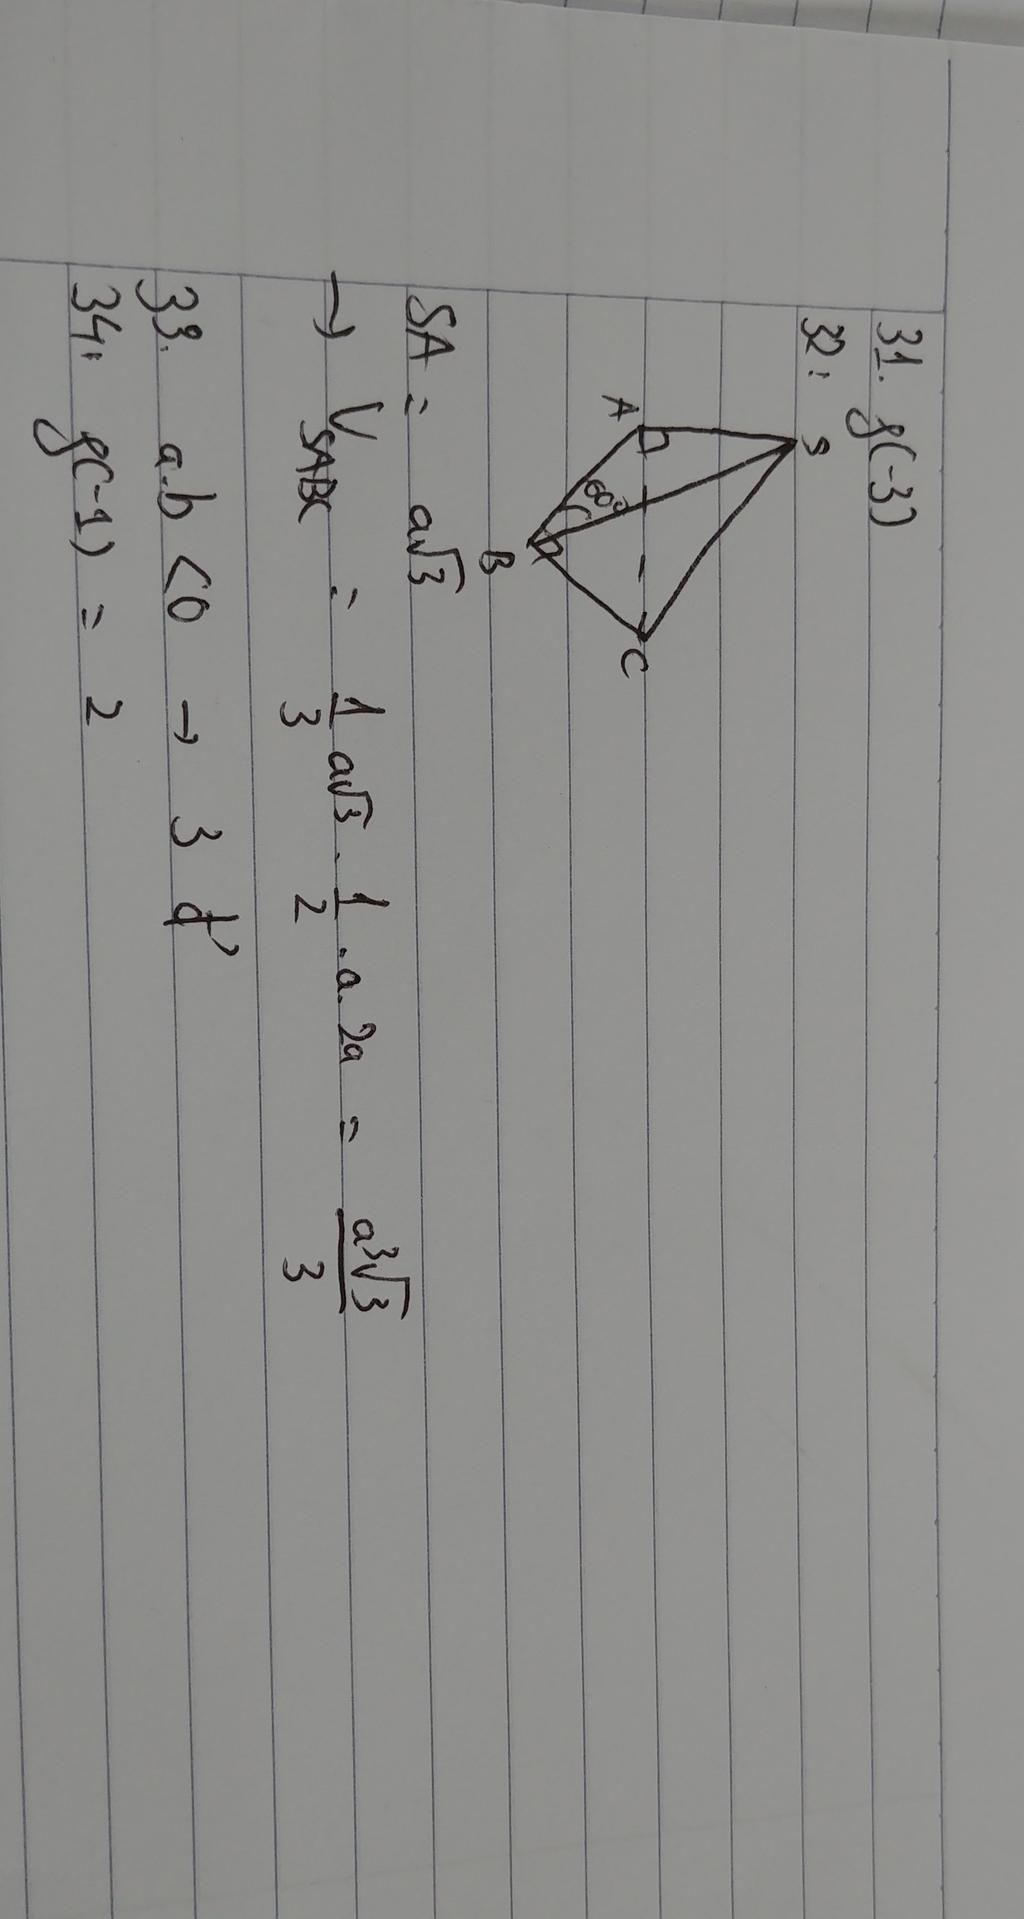 31. f(-3)
32:
S
A
60°
C
B
SA = a√3
→ V SABC = 1/3 a√3 . 1/2 . a. 2a = a³√3/3
33. a.b <0 → 3 đ'
34: f(-1) = 2